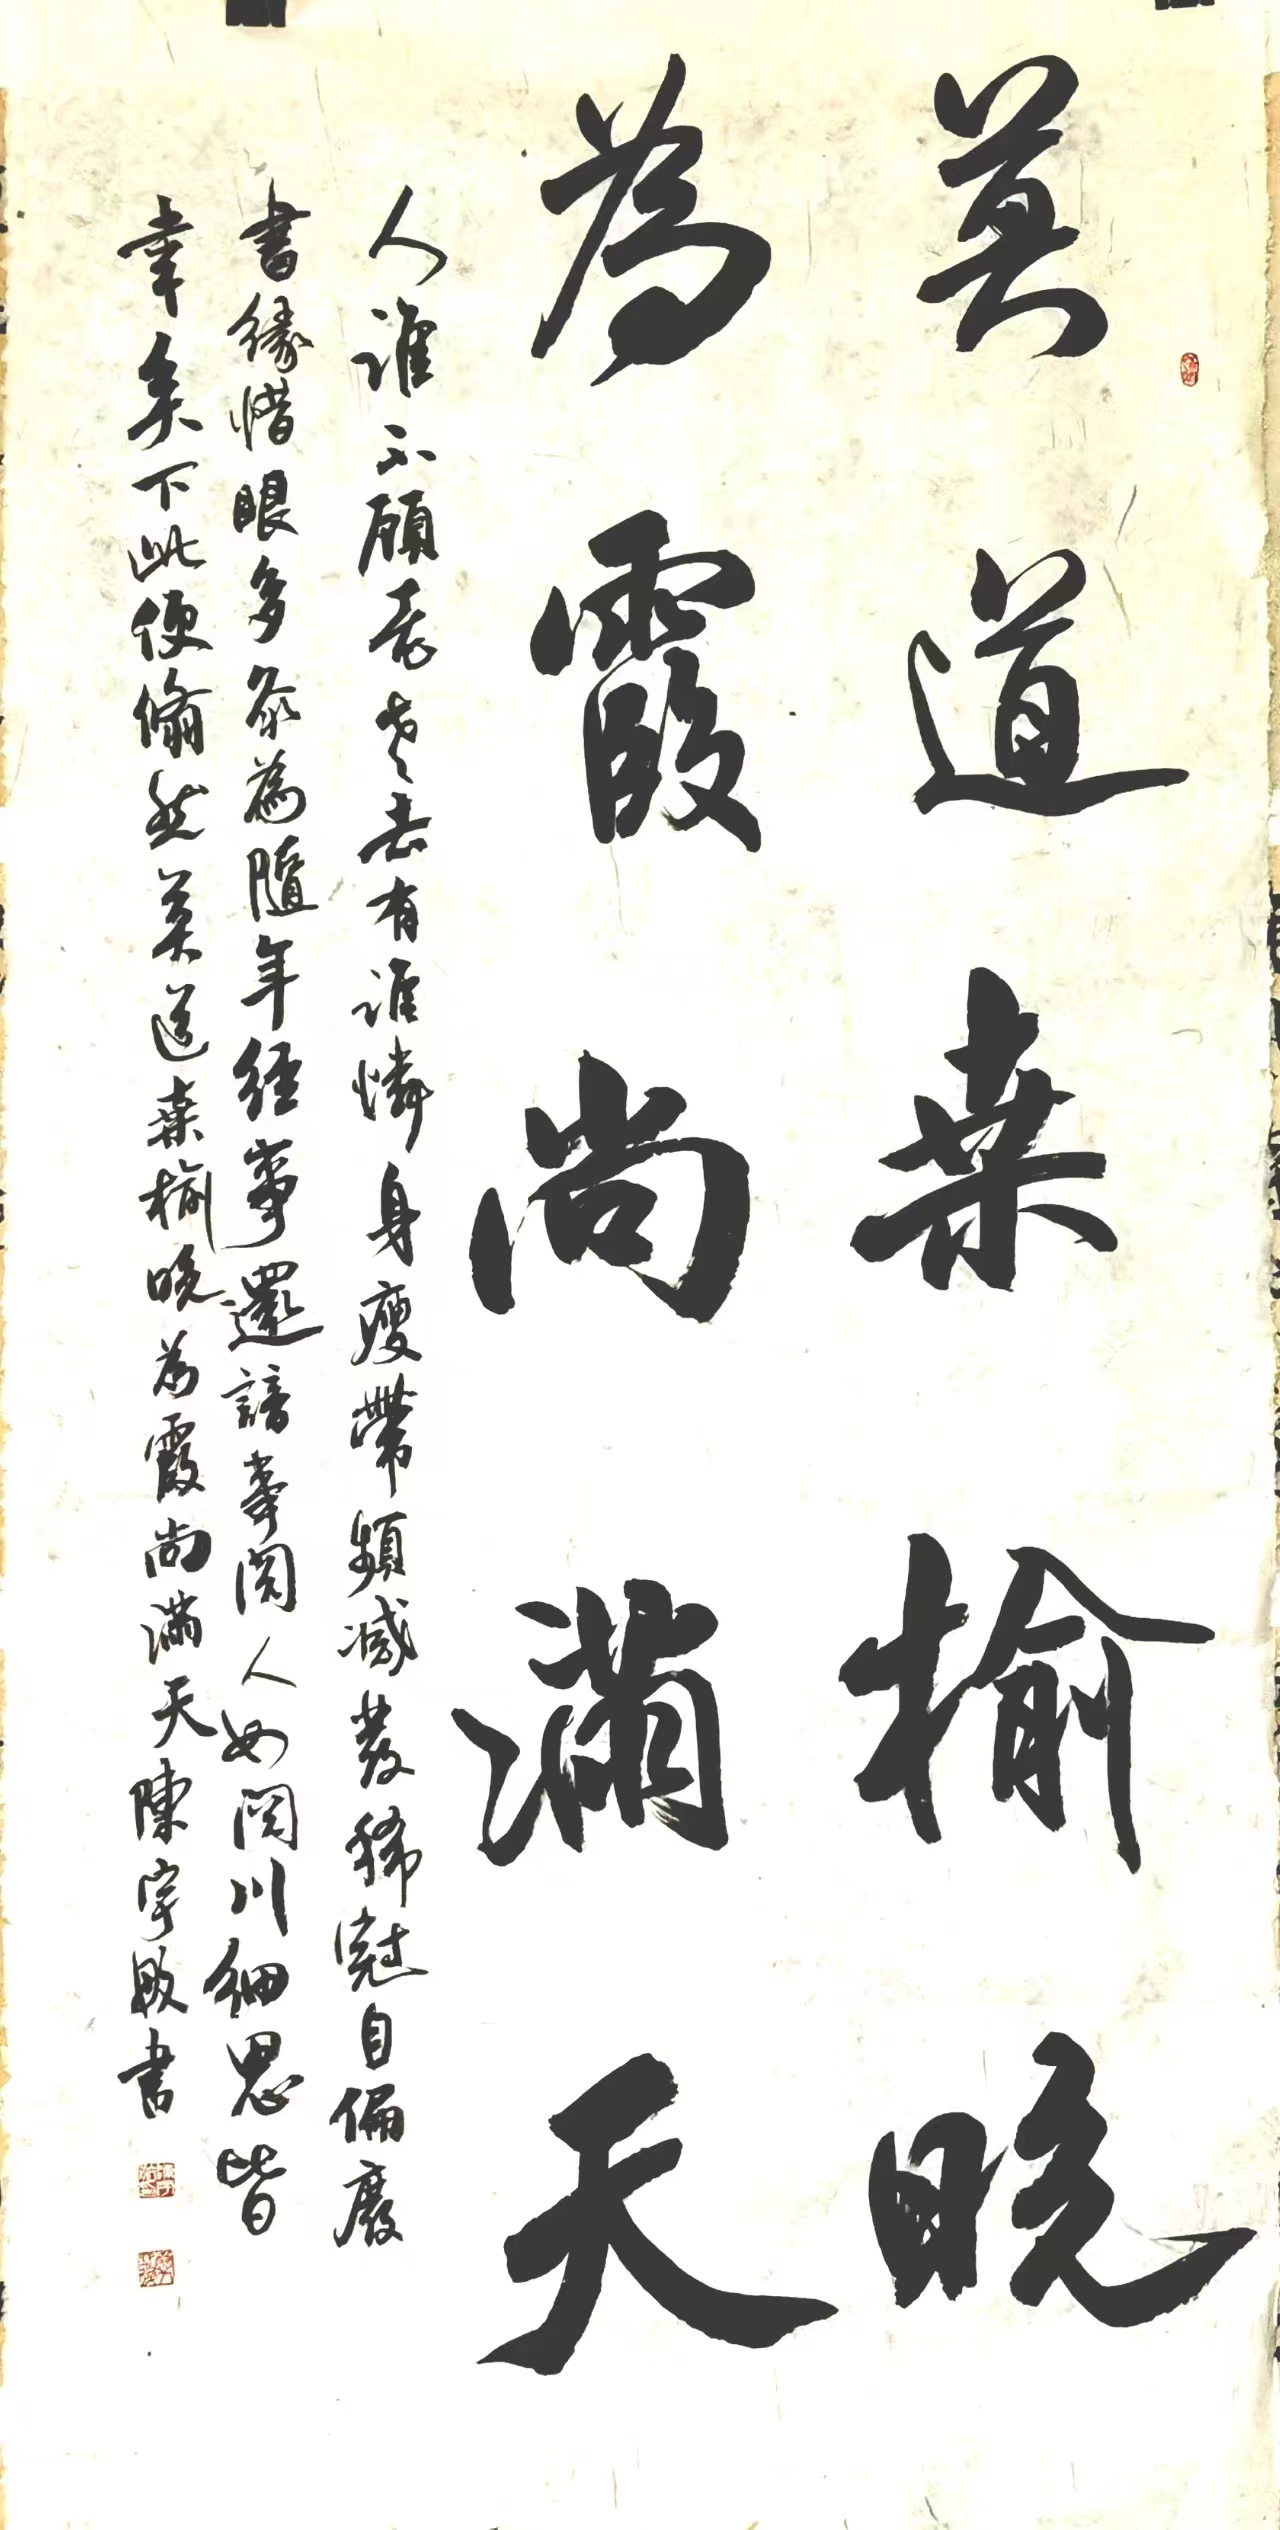 莫道桑榆晚
為霞尚滿天
人誰不顧老老去有誰憐身瘦帶頻減發稀冠自偏廢
書緣惜眼多灸為隨年經事還諳事閱人如閱川細思皆
幸矣下此便翛然莫道桑榆晚為霞尚滿天陳宇敏書